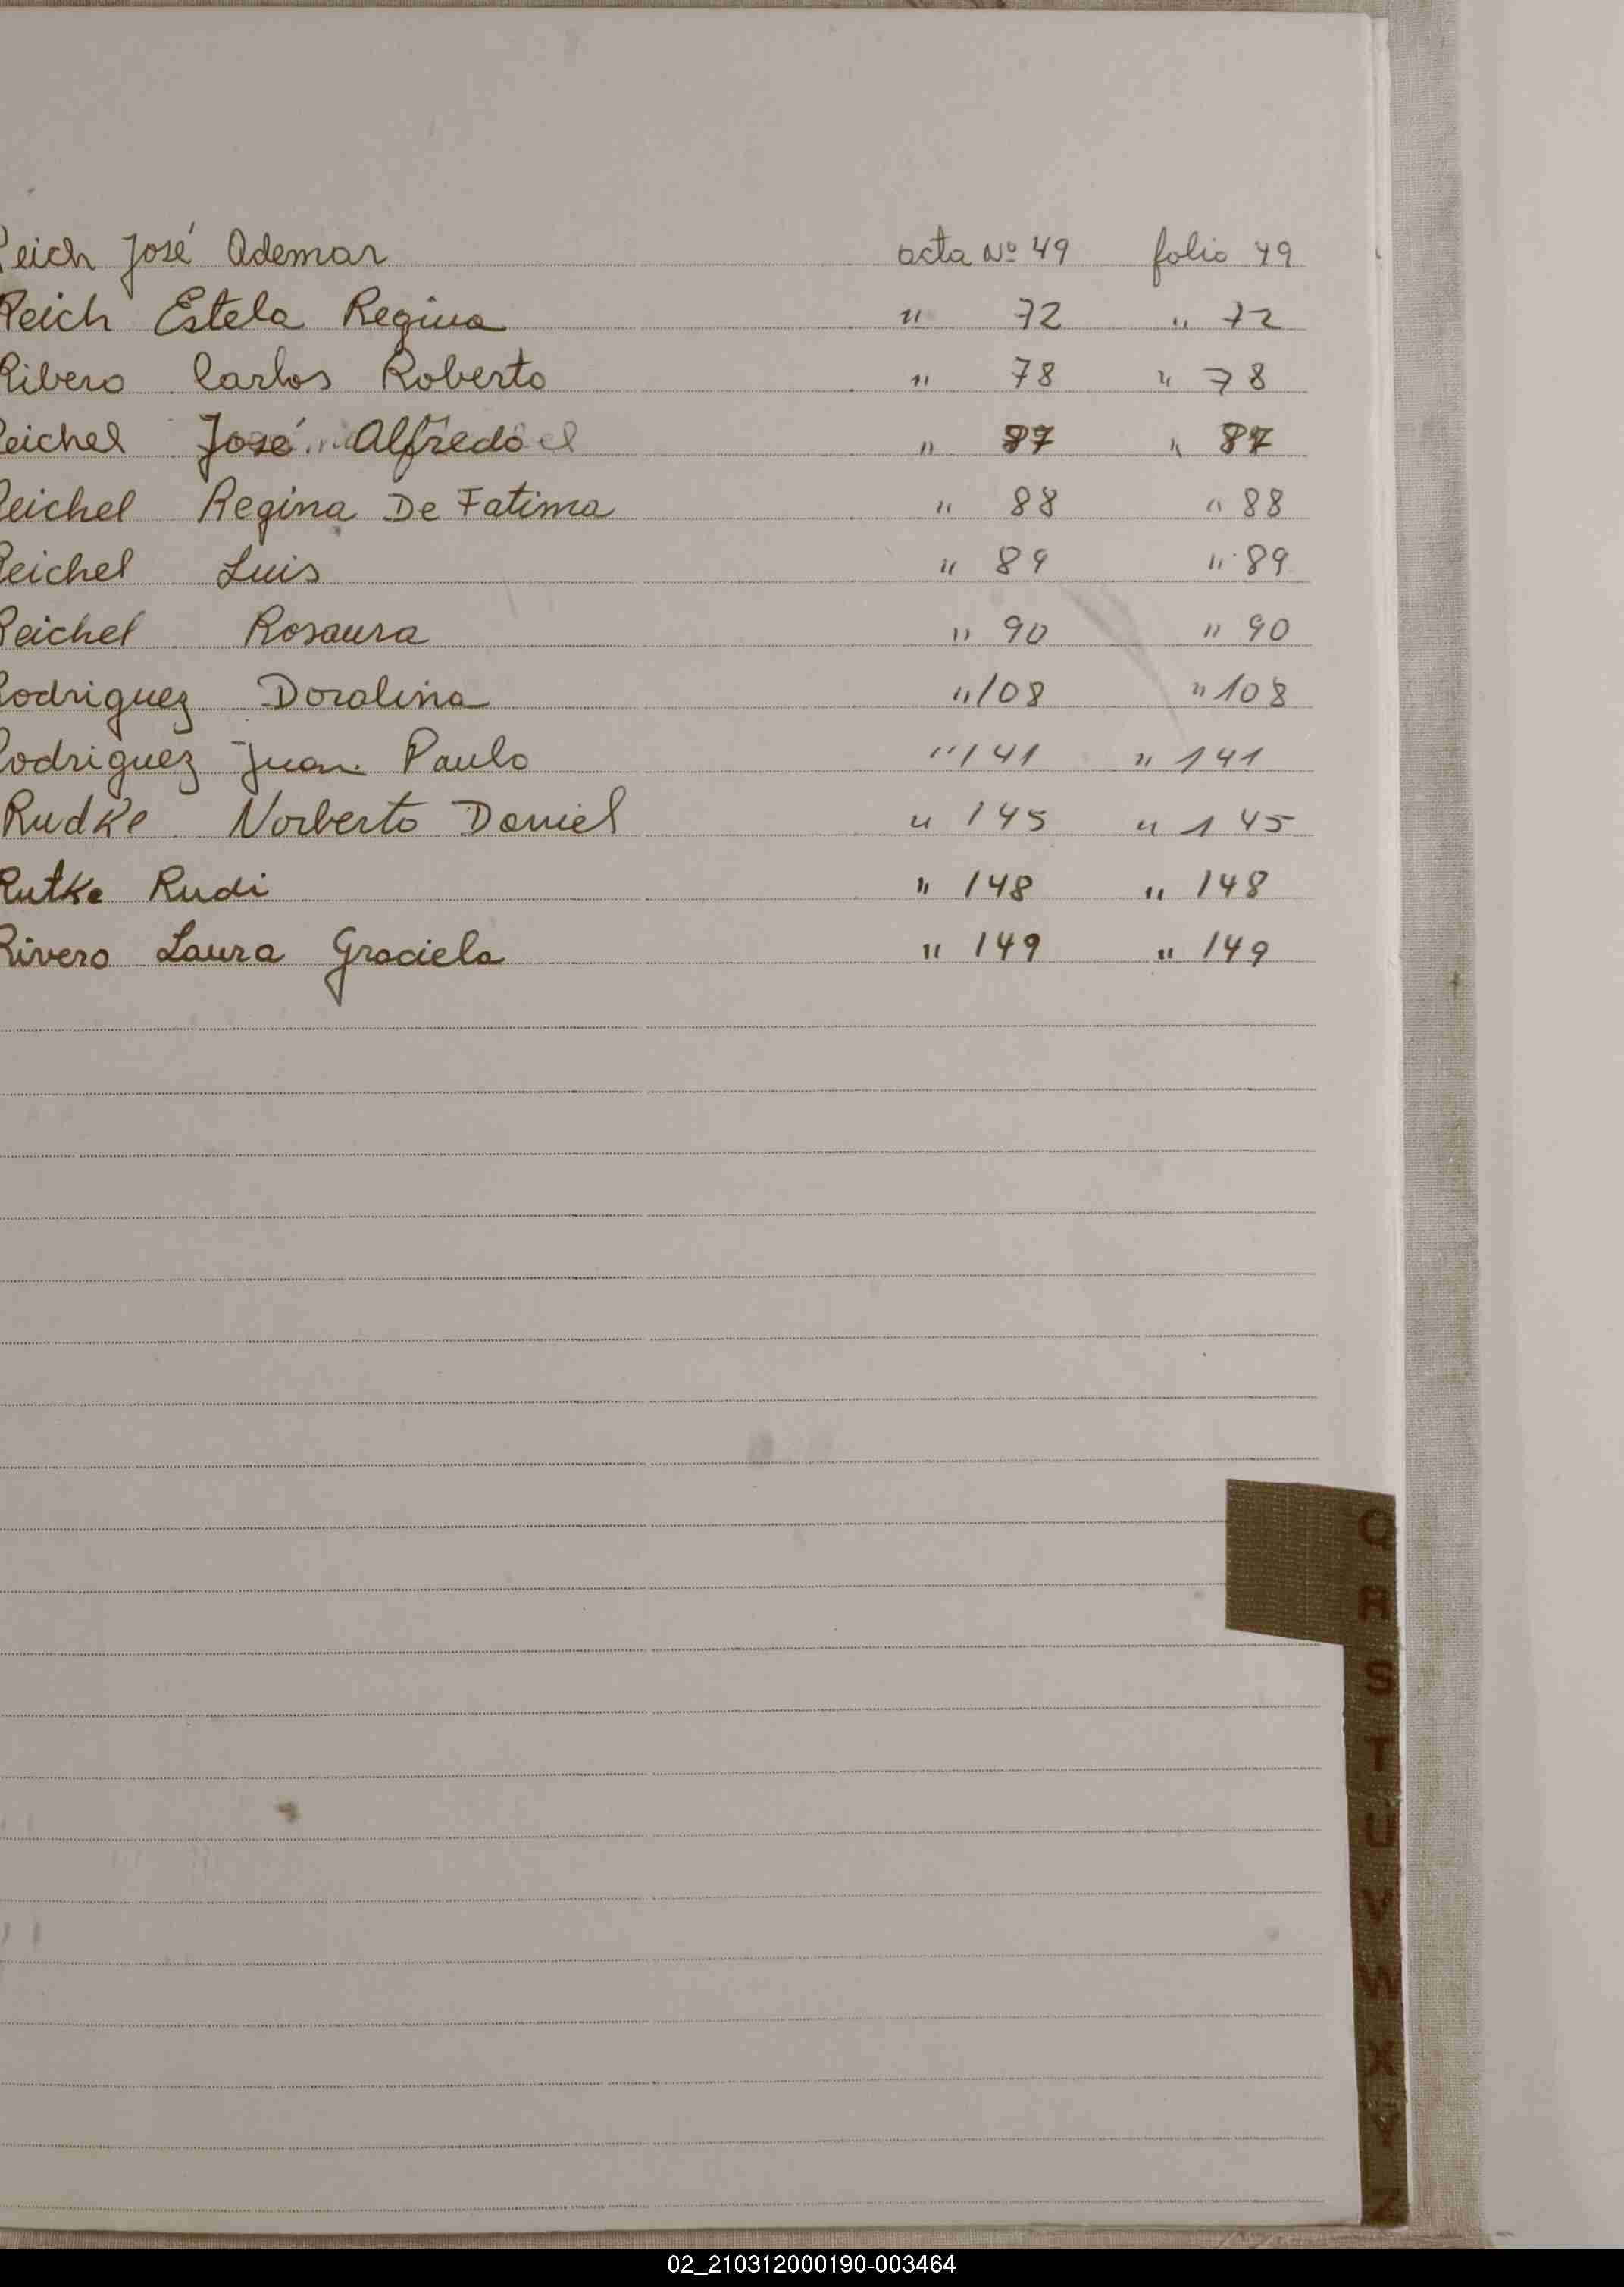 Reich José Ademar acta Nº 49 folio 49
Reich Estela Regina " 72 " 72
Ribero Carlos Roberto " 78 " 78
Reichel José Alfredo " 87 " 87
Reichel Regina De Fatima " 88 " 88
Reichel Luis " 89 " 89
Reichel Rosaura " 90 " 90
Rodriguez Doralina " 108 " 108
Rodriguez Juan Paulo " 141 " 141
Rudke Norberto Daniel " 145 " 145
Rutke Rudi " 148 " 148
Rivero Laura Graciela " 149 " 149
Q
R
S
T
U
V
W
X
Y
Z
02_210312000190-003464